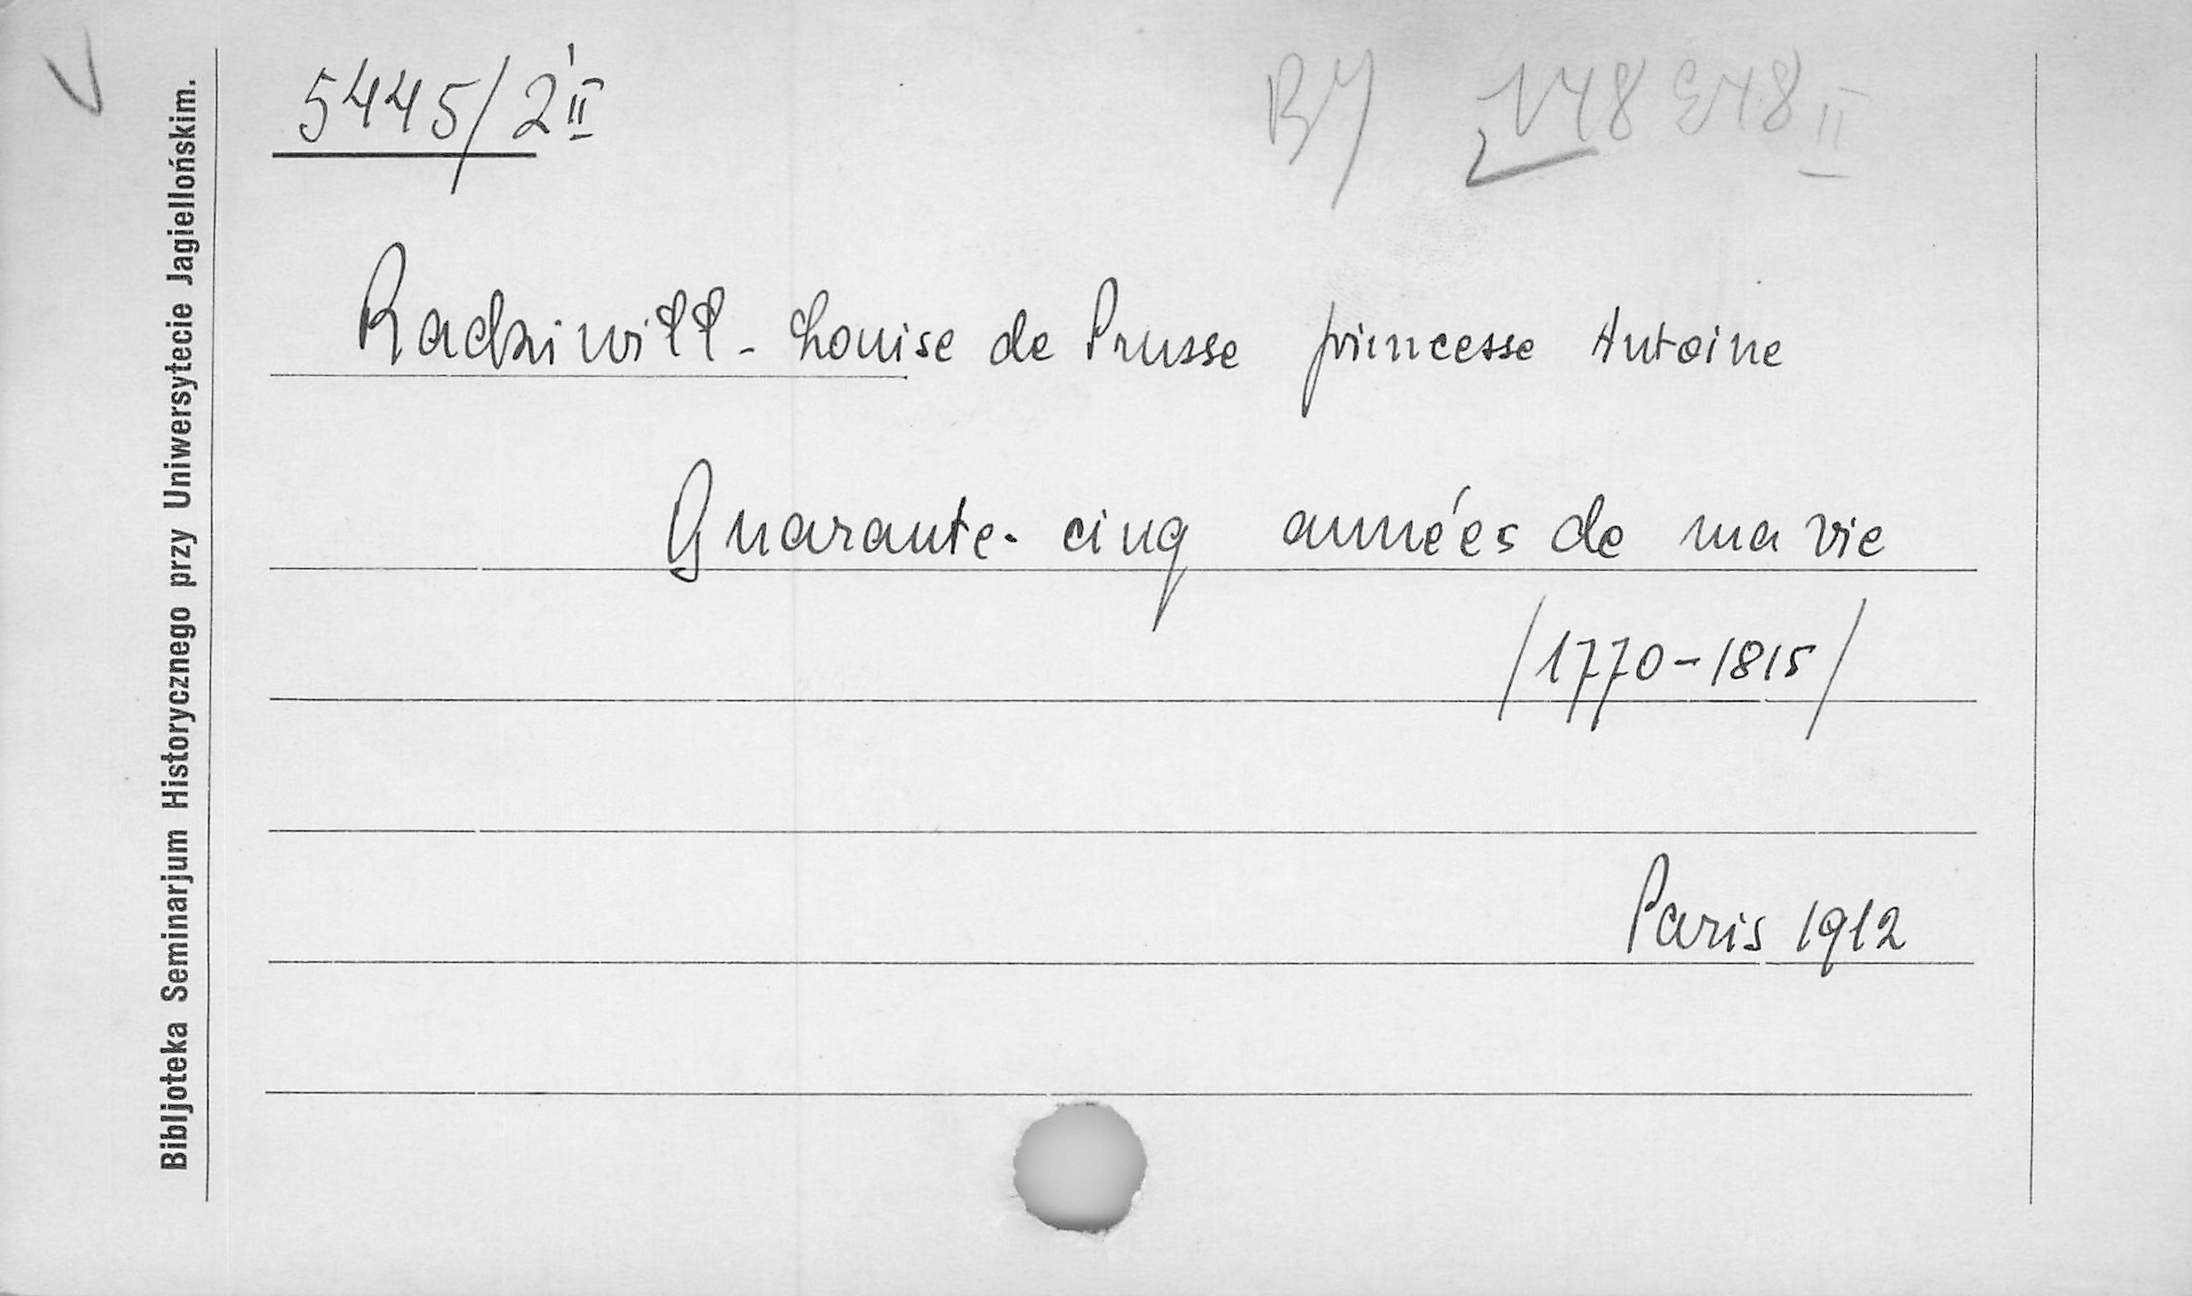 5445/2 II
Radziwiłł - Louise de Prusse princesse Antoine
Quarante-cinq années de ma vie
/1770-1815/
Paris 1912
Bibljoteka Seminarjum Historycznego przy Uniwersytecie Jagiellońskim.